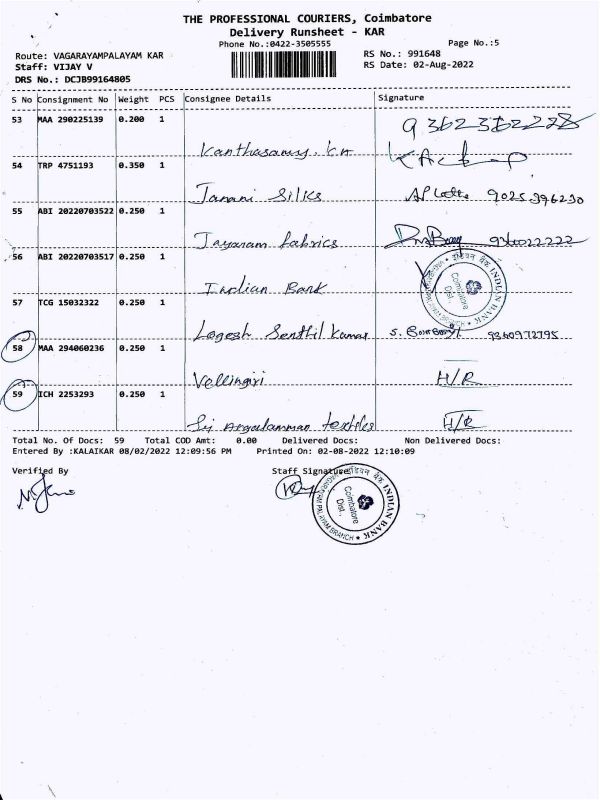 THE PROFESSIONAL COURIERS, Coimbatore
Delivery Runsheet - KAR
Phone No.:0422-3505555
Page No.:5
Route: VAGARAYAMPALAYAM KAR
RS No.: 991648
Staff: VIJAY V
RS Date: 02-Aug-2022
DRS No.: DCJB99164805
S No Consignment No Weight PCS Consignee Details Signature
53 MAA 290225139 0.200 1
Kanthasamy. K.n
54 TRP 4751193 0.350 1
Janani Silks 9025396230
55 ABI 20220703522 0.250 1
Jayaram fabrics
56 ABI 20220703517 0.250 1
Indian Bank
INDIAN BANK
Coimbatore
Dist.
57 TCG 15032322 0.250 1
Logesh Senthil Kumar 9360972795
58 MAA 294060236 0.250 1
Vellingiri H/R
59 ICH 2253293 0.250 1
Sri Angalamman textiles H/R
Total No. Of Docs: 59 Total COD Amt: 0.00 Delivered Docs: Non Delivered Docs:
Entered By :KALAIKAR 08/02/2022 12:09:56 PM Printed On: 02-08-2022 12:10:09
Verified By
Staff Signature
इंडियन बैंक INDIAN BANK
Coimbatore
Dist.
BRANCH